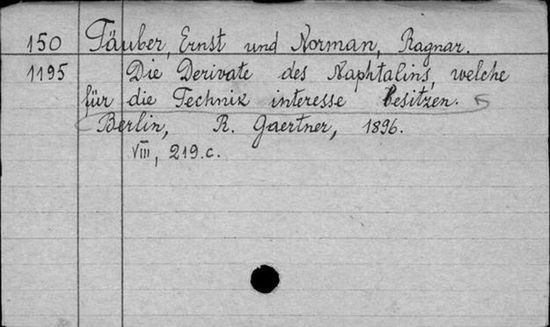 150 Täuber, Ernst und Norman, Ragnar.
1195 Die Derivate des Naphtalins, welche
für die Technik interesse besitzen.
Berlin, R. Gaertner, 1896.
VIII, 219.c.